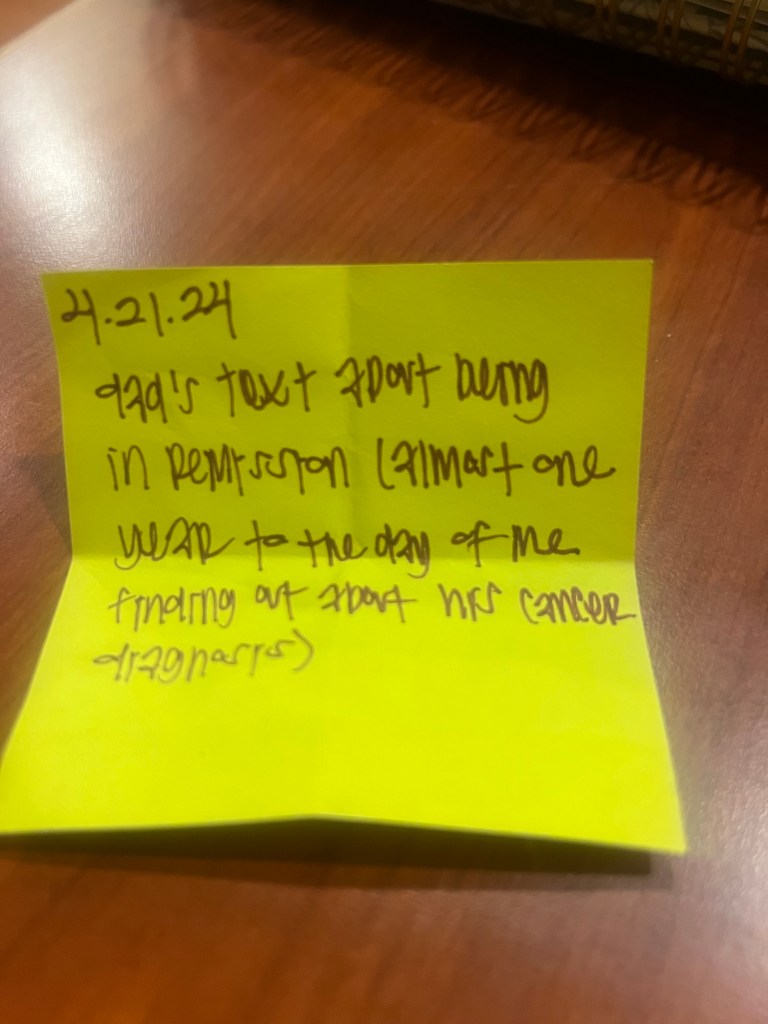 4.21.24
dad's text about being
in remission (almost one
year to the day of me
finding out about his cancer
diagnosis)